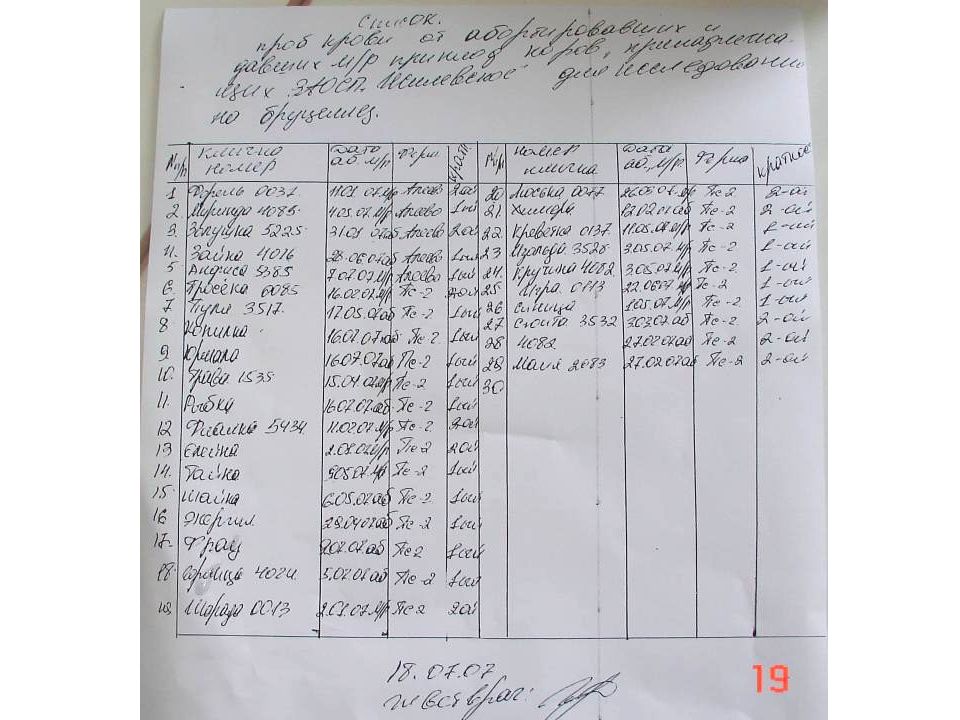 Список.
проб крови от абортировавших и
давших м/р приплод коров, принадлежа-
щих ЗАОСП "Жилевское" для исследования
на бруцеллез.
N п/п кличка номер дата аб м/р Ферма кратн N п/п номер кличка дата аб, м/р Ферма кратнос
1 Форель 0037 11.01.07 м/р Агсево 2ой 20 Моська 0077 м/р Пс-2 2-ой
2. Миринда 4085 4.05.07 м/р Агсево 1ый 21. Химера 12.02.07 аб Пс-2 2-ой
3. Золушка 5225 31.01.07 аб Агсево 2ой 22. Креветка 0137 11.05.07 м/р Пс-2
4. Зайка 4016 28.06.07 аб Агсево 1ый 23 3526 3.05.07 м/р Пс-2 1-ый
5 Андриса 5385 7.07.07 м/р Агсево 1ый 24. Кручина 4082 3.05.07 м/р Пс-2 1-ый
6. Просека 0085 16.02.07 м/р Пс-2 25 Игра 0113 22.06.07 м/р Пс-2 1-ый
7 Пуля 3517 17.05.07 аб Пс-2 1ый 26 Синица 1.05.07 м/р Пс-2 1-ый
8 Копилка 16.07.07 аб Пс-2 1ый 27 3532 30.3.07 аб Пс-2 2-ой
9. 16.07.07 аб Пс-2 1ый 28 4082 27.02.07 аб Пс-2 2-ой
10. Трава 1535 15.04.07 м/р Пс-2 1ый 29 Майя 2083 27.02.07 аб Пс-2 2-ой
11. Рыбка 16.07.07 аб Пс-2 1ый 30
12 Фиалка 5434 11.02.07 м/р Пс-2 2ой
13 Елейна 2.02.07 м/р Пс-2 2ой
14. Тайка 9.05.07 м/р Пс-2 1ый
15. Шайка 6.05.07 аб Пс-2 1ый
16 Энергия 29.04.07 аб Пс-2 1ый
17. Фрац 9.07.07 аб Пс2 1ый
18. 4024 5.07.07 аб Пс-2 1ый
19 Шарада 0013 2.01.07 м/р Пс2 2ой
18.07.07
гл ветврач:
19